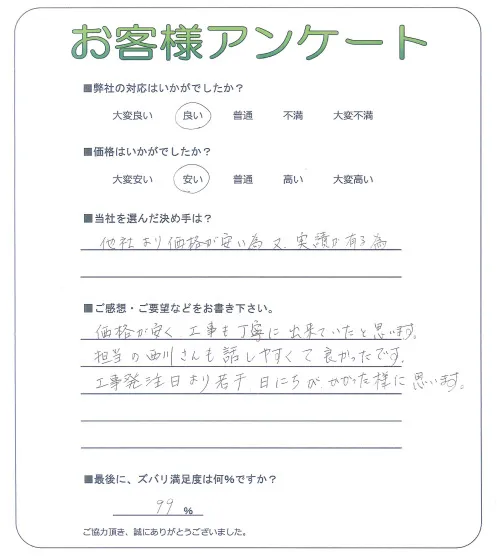 お客様アンケート
■弊社の対応はいかがでしたか？
大変良い 良い 普通 不満 大変不満
■価格はいかがでしたか？
大変安い 安い 普通 高い 大変高い
■当社を選んだ決め手は？
他社より価格が安い為 又、実績が有る為
■ご感想・ご要望などをお書き下さい。
価格が安く 工事も丁寧に出来ていたと思います。
担当の西川さんも話しやすくて良かったです。
工事発注日より若干 日にちがかかった様に思います。
■最後に、ズバリ満足度は何%ですか？
99 %
ご協力頂き、誠にありがとうございました。